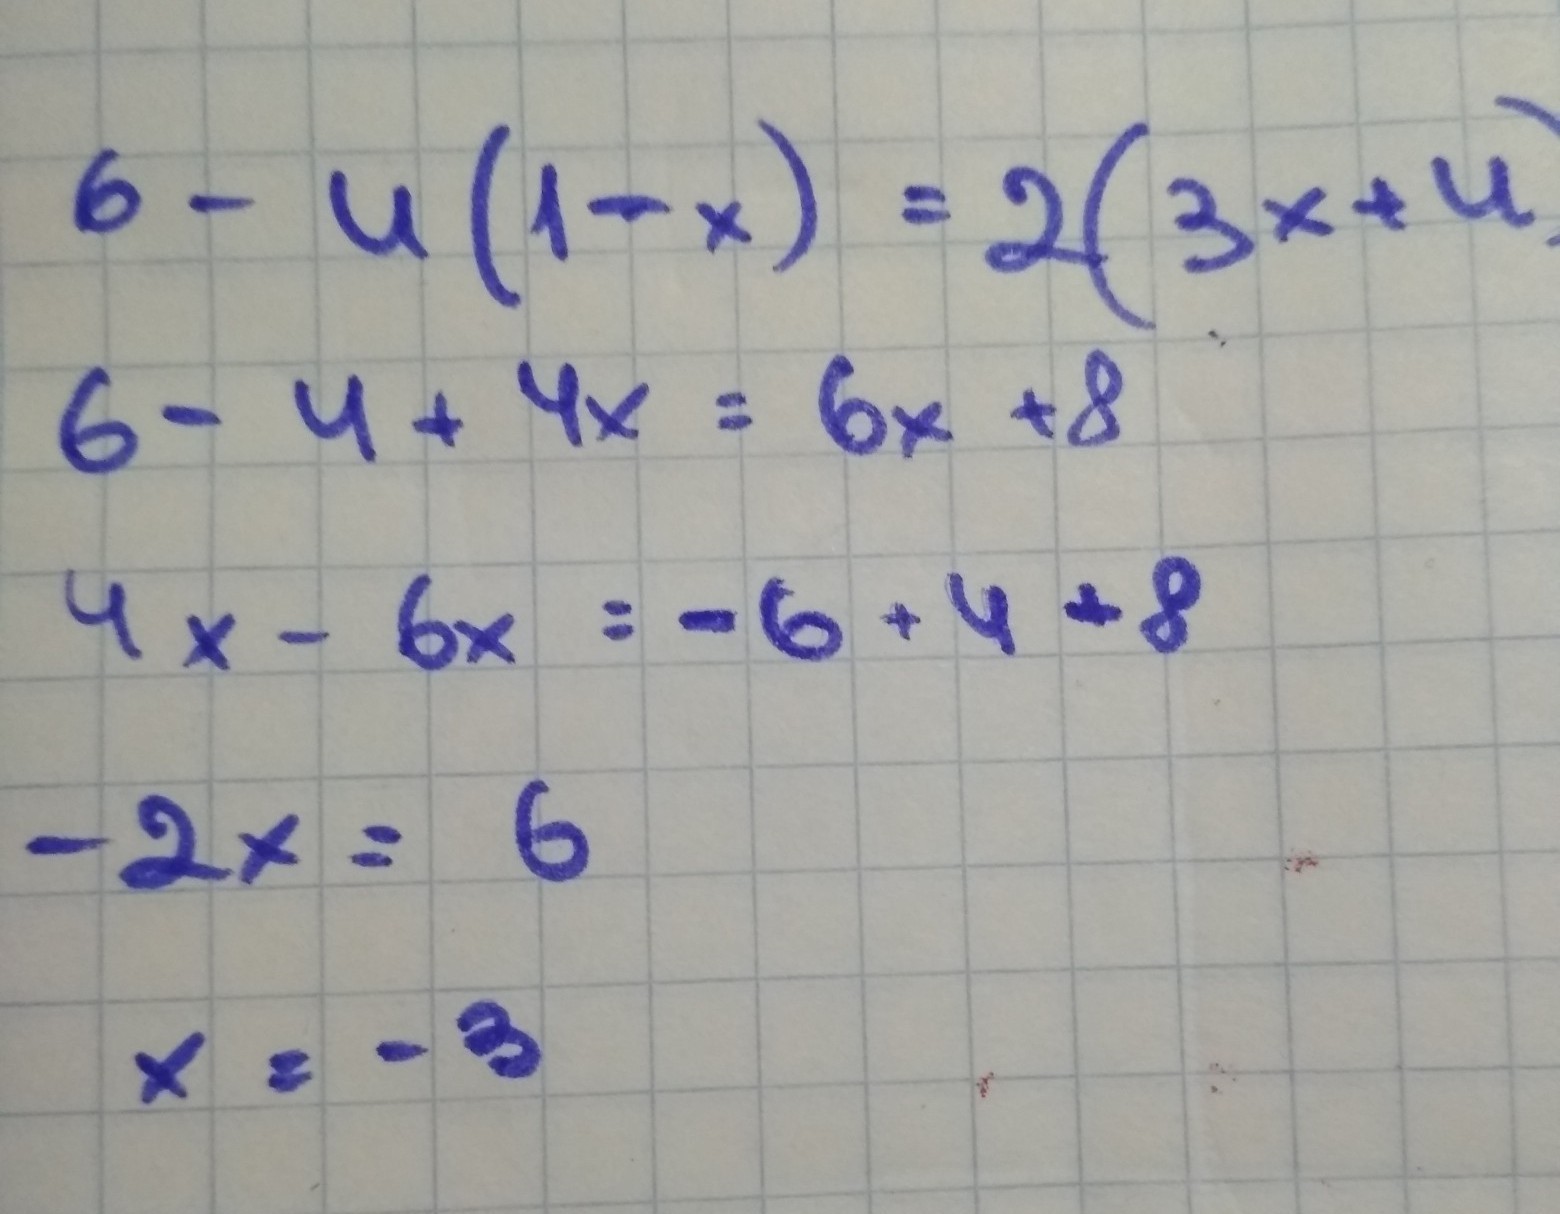 6 - 4(1 - x) = 2(3x + 4)
6 - 4 + 4x = 6x + 8
4x - 6x = -6 + 4 + 8
-2x = 6
x = -3